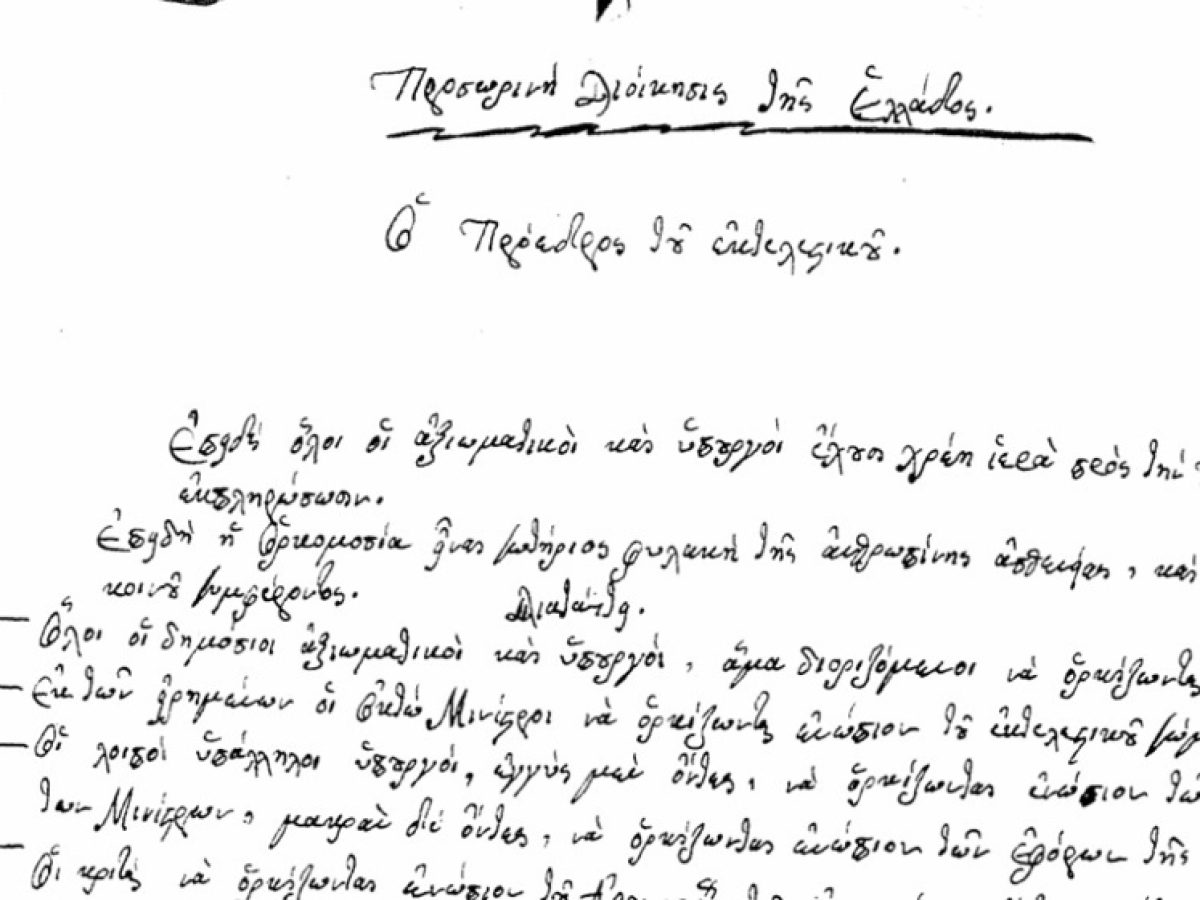 Προσωρινὴ Διοίκησις τῆς Ἑλλάδος.
Ὁ Πρόεδρος τοῦ ἐκτελεστικοῦ.
Ἐπειδὴ ὅλοι οἱ ἀξιωματικοὶ καὶ ὑπουργοὶ ἔχουσι χρέη ἱερὰ πρὸς τὴν
ἐκπλήρωσιν.
Ἐπειδὴ ἡ ὁρκομοσία εἶναι σωτήριος φυλακὴ τῆς ἀνθρωπίνης ἀσθενείας, καὶ
κοινοῦ συμφέροντος.
Διατάττει.
Ὅλοι οἱ δημόσιοι ἀξιωματικοὶ καὶ ὑπουργοὶ, ἅμα διοριζόμενοι νὰ ὁρκίζωνται
Ἐκ τῶν εἰρημένων οἱ ὀκτὼ Μινίστροι νὰ ὁρκίζωνται ἐνώπιον τοῦ ἐκτελεστικοῦ
Οἱ λοιποὶ ὑπάλληλοι ὑπουργοὶ, ἐγγὺς μὲν ὄντες, νὰ ὁρκίζωνται ἐνώπιον
των Μινίστρων, μακρὰν δὲ ὄντες, νὰ ὁρκίζωνται ἐνώπιον τῶν ἐφόρων τῆς
Οἱ κριταὶ νὰ ὁρκίζωνται ἐνώπιον τοῦ